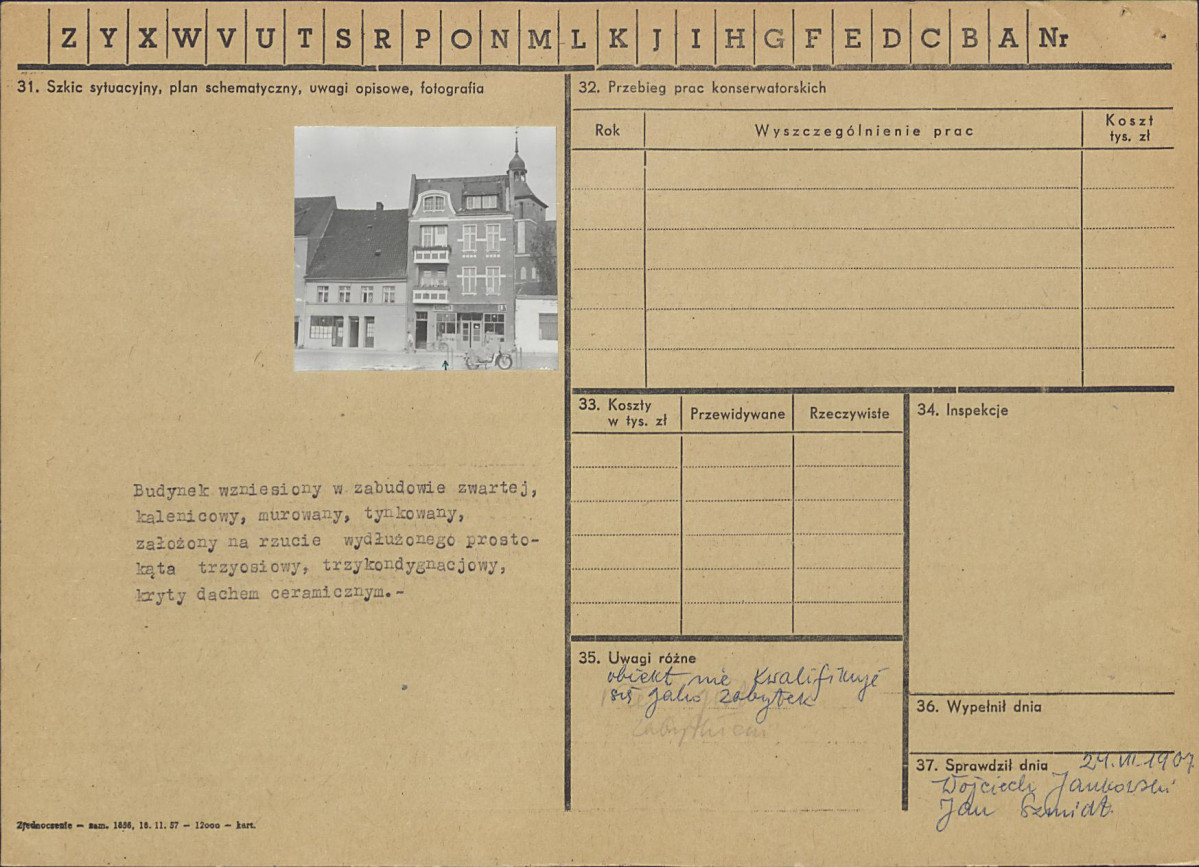 Z Y X W V U T S R P O N M L K J I H G F E D C B A Nr
31. Szkic sytuacyjny, plan schematyczny, uwagi opisowe, fotografia
Budynek wzniesiony w zabudowie zwartej,
kalenicowy, murowany, tynkowany,
założony na rzucie wydłużonego prosto-
kąta trzyosiowy, trzykondygnacjowy,
kryty dachem ceramicznym.-
Zjednoczenie — zam. 1656, 18. 11. 57 — 12000 — kart.
32. Przebieg prac konserwatorskich
Rok
Wyszczególnienie prac
Koszt
tys. zł
33. Koszty
w tys. zł
Przewidywane
Rzeczywiste
34. Inspekcje
35. Uwagi różne
obiekt nie kwalifikuje
się jako zabytek
zabytkiem
36. Wypełnił dnia
37. Sprawdził dnia
Wojciech Jankowski
Jan Szmidt.